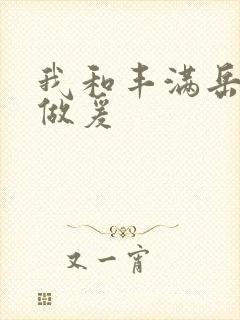 我和丰满岳
做爰
又一宵